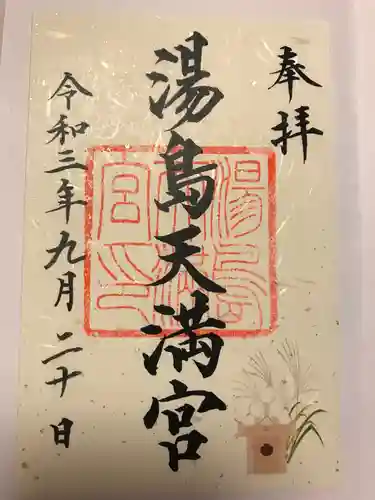 奉拝
湯島天満宮
湯島天満宮印
令和三年九月二十日